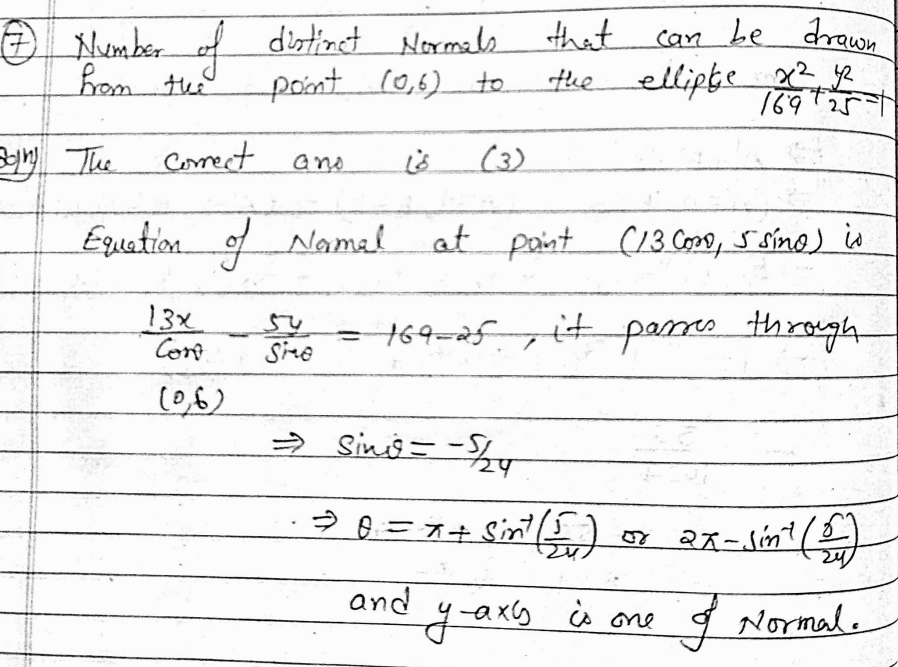 ⑦ Number of distinct Normals that can be drawn
from the point (0,6) to the ellipse x²/169 + y²/25 = 1
Soln) The correct ans is (3)
Equation of Normal at point (13 Cosθ, 5 sinθ) is
13x/Cosθ - 5y/Sinθ = 169-25, it passes through
(0,6)
⇒ Sinθ = -5/24
⇒ θ = π + Sin⁻¹(5/24) or 2π - Sin⁻¹(5/24)
and y-axis is one of Normal.